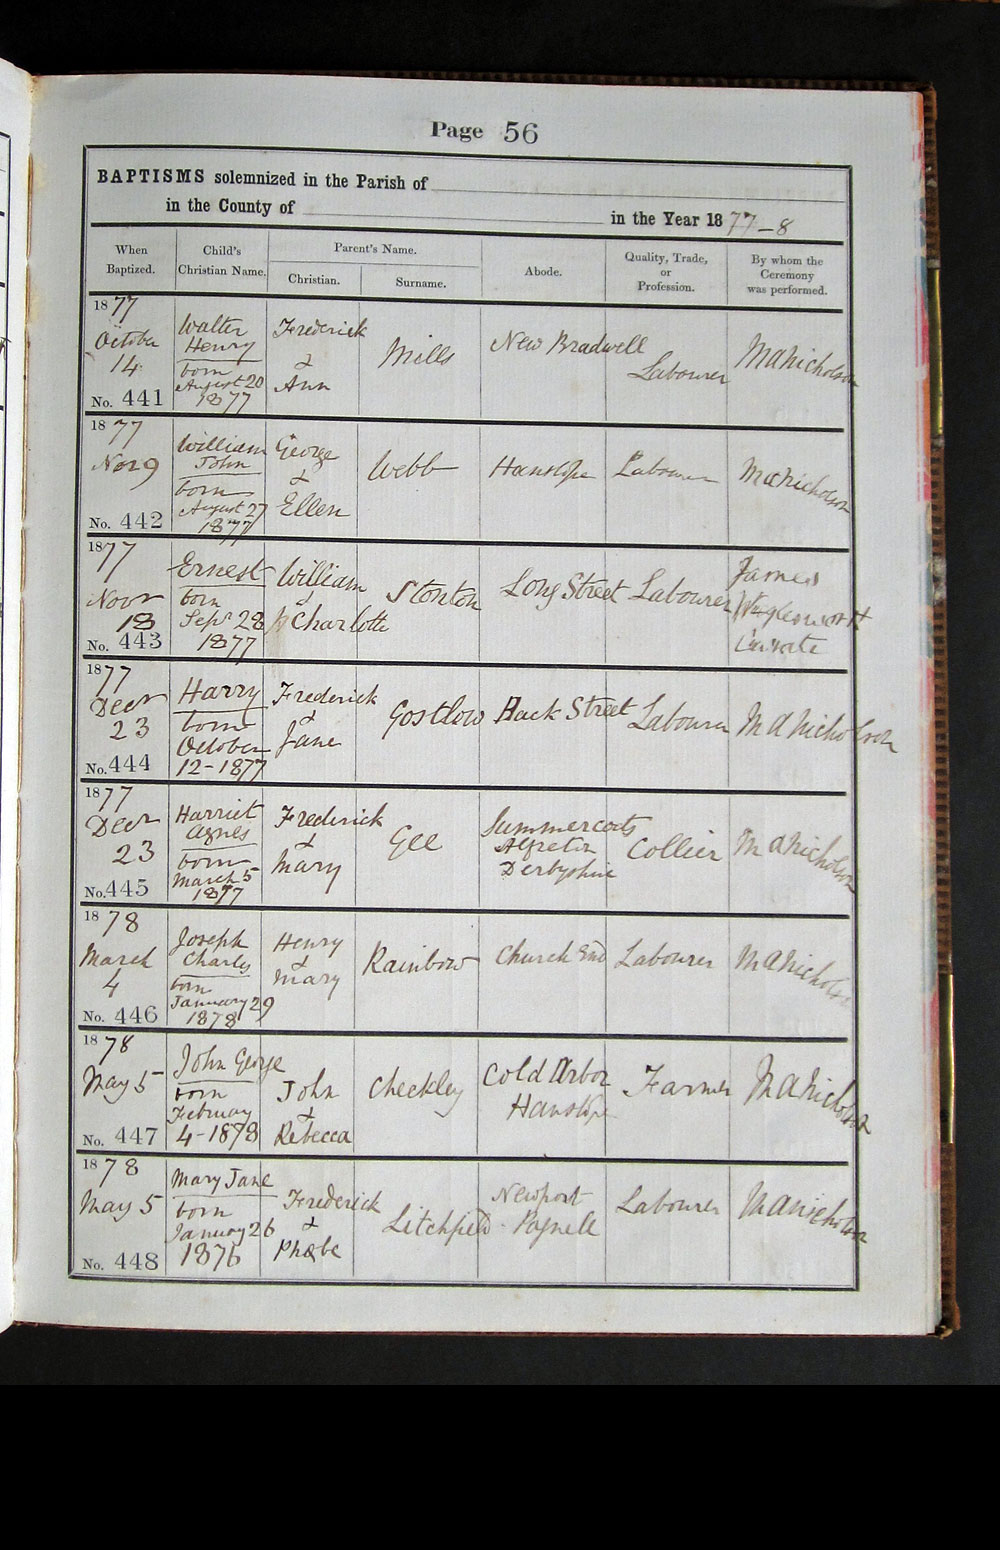 Page 56
BAPTISMS solemnized in the Parish of
in the County of in the Year 1877-8
When Baptized.
Child's Christian Name.
Parent's Name.
Christian.
Surname.
Abode.
Quality, Trade, or Profession.
By whom the Ceremony was performed.
1877
October
14
No. 441
Walter
Henry
born
August 20
1877
Frederick
&
Ann
Mills
New Bradwell
Labourer
M A Nicholson
1877
Nov 9
No. 442
William
John
born
August 27
1877
George
&
Ellen
Webb
Hanslope
Labourer
M A Nicholson
1877
Novr
18
No. 443
Ernest
born
Sepr 28
1877
William
&
Charlotte
Stonton
Long Street
Labourer
James
Curate
1877
Decr
23
No. 444
Harry
born
October
12-1877
Frederick
&
Jane
Gostlow
Back Street
Labourer
M A Nicholson
1877
Decr
23
No. 445
Harriet
Agnes
born
March 5
1877
Frederick
&
Mary
Gee
Summercoats
Alfreton
Derbyshire
Collier
M A Nicholson
1878
March
4
No. 446
Joseph
Charles
born
January 29
1878
Henry
&
Mary
Rainbow
Church End
Labourer
M A Nicholson
1878
May 5
No. 447
John George
born
February
4-1878
John
&
Rebecca
Checkley
Cold Arbor
Hanslope
Farmer
M A Nicholson
1878
May 5
No. 448
Mary Jane
born
January 26
1876
Frederick
&
Phœbe
Litchfield
Newport
Pagnell
Labourer
M A Nicholson